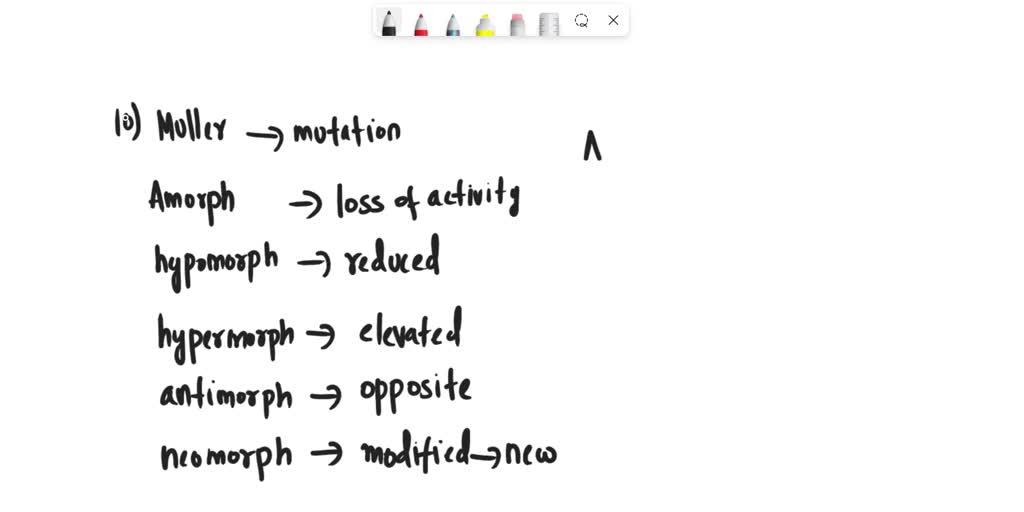 10) Muller → mutation
Λ
Amorph → loss of activity
hypomorph → reduced
hypermorph → elevated
antimorph → opposite
neomorph → modified → new